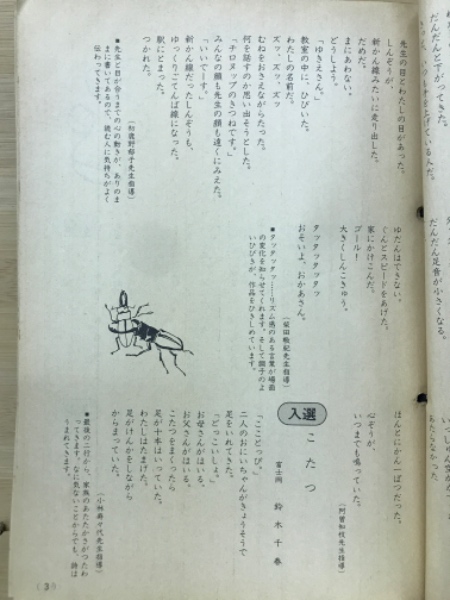 だんだんとすがってきた。
先生の目とわたしの目があった。
しんぞうが、
新かん線みたいに走り出した。
だめだ、
まにあわない。
どうしよう。
「ゆきえさん。」
教室の中に、ひびいた。
わたしの名前だ。
ズッ、ズッ、ズッ
むねをおさえながらたった。
何を話すのか思い出そうとした。
「チロヌップのきつねです。」
みんなの顔も先生の顔も遠くにみえた。
「いいでーす。」
新かん線だったしんぞうも、
ゆっくりごてんば線になった。
駅にとまった。
つかれた。
■先生と目が合うまでの心の動きが、ありのま
まに書いてあるので、読む人に気持ちがよく
伝わってきます。
だんだん足音が小さくなる。
ゆだんはできない。
ぐんとスピードをあげた。
家にかけこんだ。
ゴール!
大きくしんこきゅう。
タッタッタッタッ
おそいよ、おかあさん。
(柴田敏紀先生指導)
■タッタッタッ……リズム感のある言葉が場面
の変化を知らせてくれます。そして調子のよ
いひびきが、作品をひきしめています。
あたらなかった
ほんとにかん一ぱつだった。
心ぞうが、
いつまでも鳴っていた。
(阿曽和枝先生指導)
入選
こたつ
富士岡 鈴木千春
「ここどっぴ。」
二人のおにいちゃんがきょうそうで
足をいれてきた。
「どっこいしょ。」
お母さんがはいる。
お父さんがはいる。
こたつをまくったら
足が十本はいっていた。
わたしはたまげた。
足がけんかをしながら
からまっていた。
(小林寿々代先生指導)
■最後の二行から、家族のあたたかさがつたわ
ってきます。なに気ないことからでも、詩は
うまれてきます。